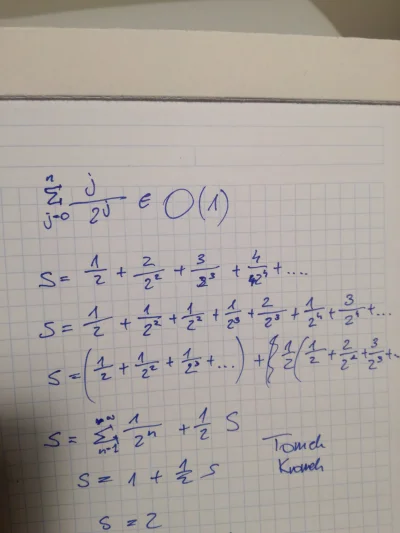 n
∑ j/2^j ∈ O(1)
j=0
S = 1/2 + 2/2² + 3/2³ + 4/2⁴ + ....
S = 1/2 + 1/2² + 1/2² + 1/2³ + 2/2³ + 1/2⁴ + 3/2⁴ + ...
S = (1/2 + 1/2² + 1/2³ + ...) + { 1/2 (1/2 + 2/2² + 3/2³ + ..
S = ∞∑n=1 1/2ⁿ + 1/2 S
S = 1 + 1/2 S
S = 2